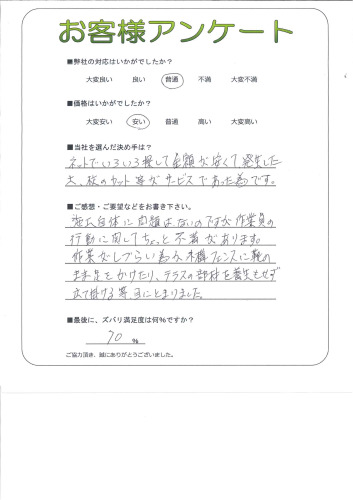 お客様アンケート
■弊社の対応はいかがでしたか？
大変良い 良い 普通 不満 大変不満
■価格はいかがでしたか？
大変安い 安い 普通 高い 大変高い
■当社を選んだ決め手は？
ネットでいろいろ探して金額が安くて発生した
木、枝のカット等がサービスであった為です。
■ご感想・ご要望などをお書き下さい。
施工自体に問題はないのですが作業員の
行動に関してちょっと不満があります。
作業がしづらい為か木棚フェンスに靴の
まま足をかけたり、テラスの部材を養生もせず
立て掛ける等 目にとまりました。
■最後に、ズバリ満足度は何％ですか？
70 %
ご協力頂き、誠にありがとうございました。